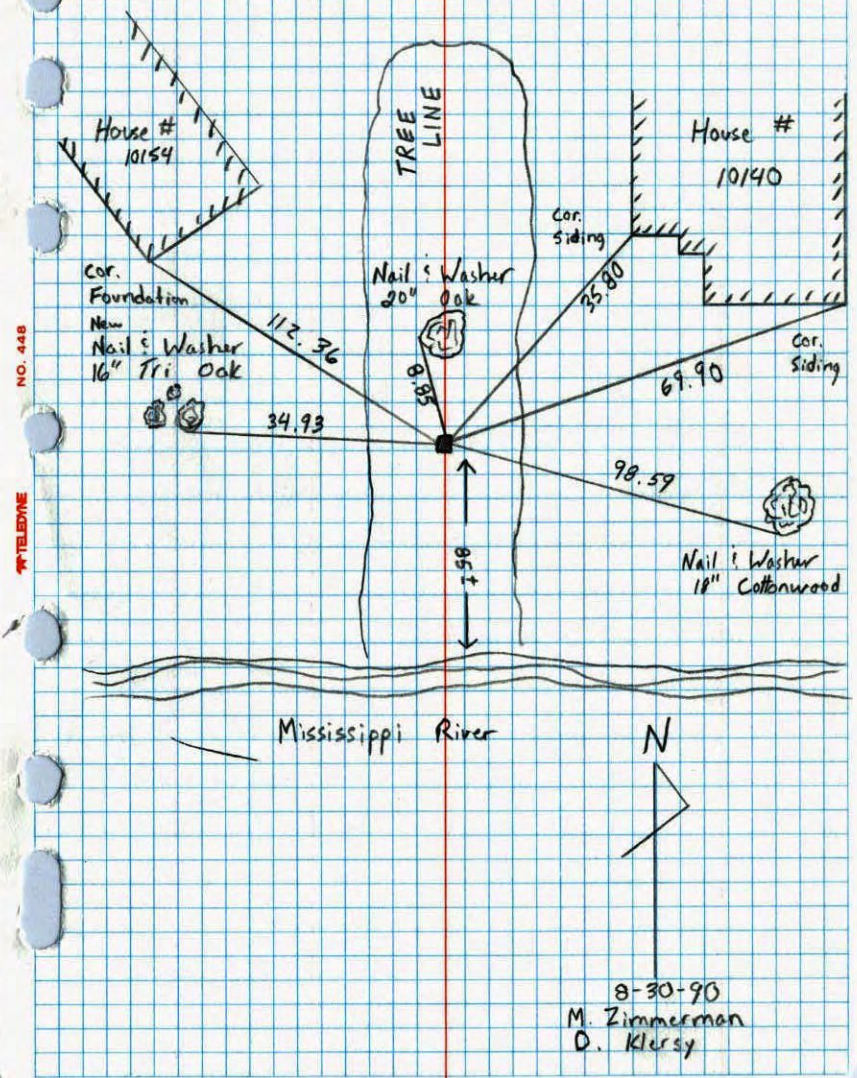 House #
10154
TREE
LINE
House #
10140
cor.
Siding
cor.
Foundation
Nail & Washer
20" Oak
35.80
New
Nail & Washer
16" Tri Oak
112.36
8.85
cor.
Siding
69.90
34.93
98.59
Nail & Washer
18" Cottonwood
85±
Mississippi River
N
8-30-90
M. Zimmerman
D. Klersy
NO. 448
TELEDYNE